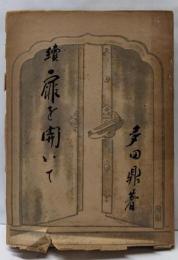 續 扉を開いて
多田鼎著